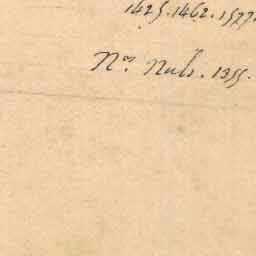 1425.1462.1577.
Nos Nulr. 1355.